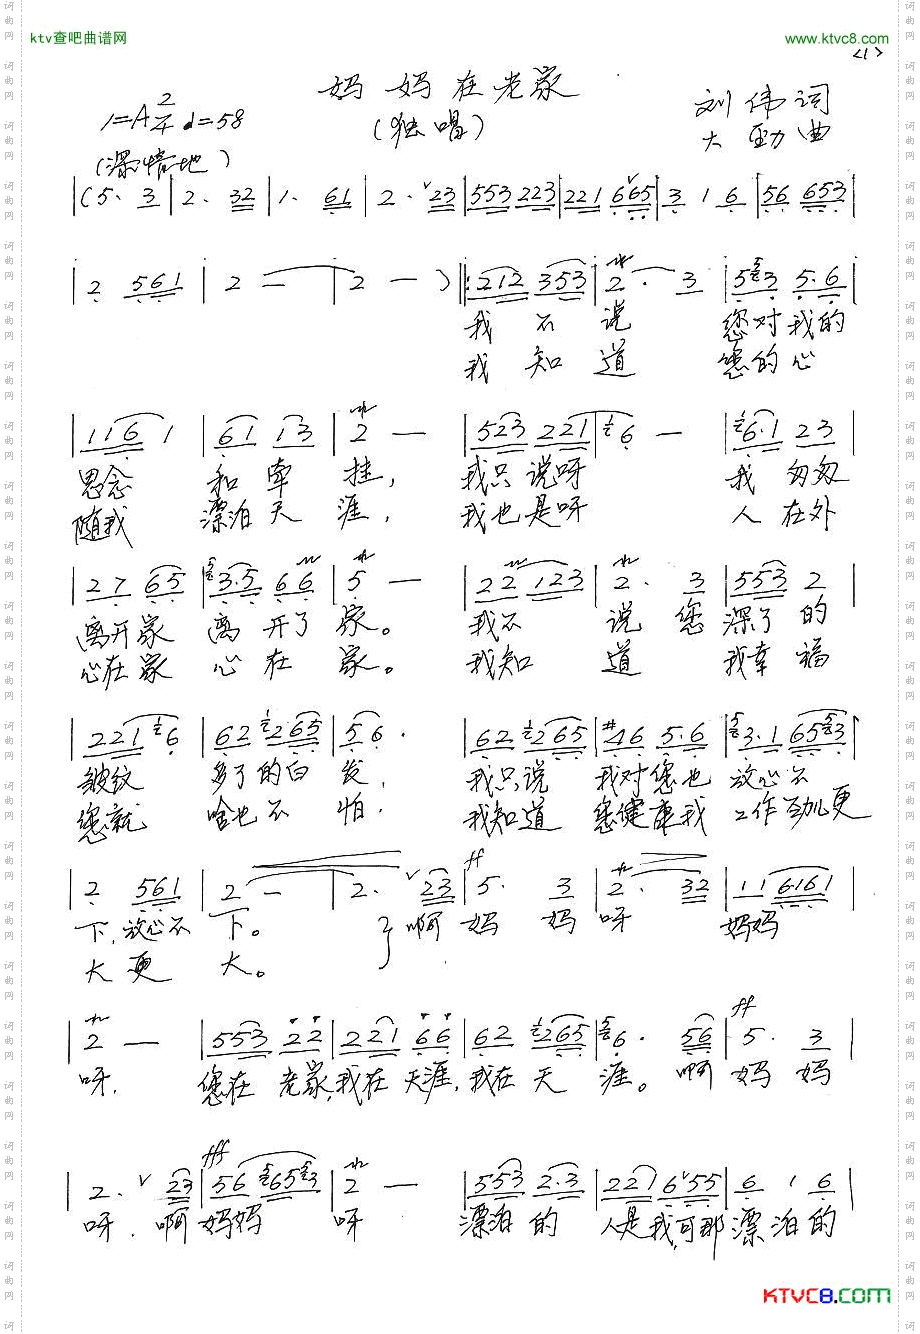 ktv查吧曲谱网
www.ktvc8.com
<1>
妈妈在老家
1=A 2/4 ♩=58
(独唱)
刘伟词
大勁曲
(深情地)
|(5. 3|2. 32|1. 61|2. 23|553 223|221 665|3 1 6|56 653|
|2 561|2 —|2 — )|:212 353|2. 3|53 5.6|
我不说 您对我的
我知道 您的心
|116 1|61 13|2 —|523 221|6 —|6.1 23|
思念 和牵挂, 我只说呀 我匆匆
随我 漂泊天涯, 我也是呀 人在外
|27 65|3.5 66|5 —|22 123|2. 3|553 2|
离开家 离开了家。 我不说 您深了的
心在家 心在家。 我知道 我幸福
|221 6|62 265|56.|62 265|#46 5.6|3.1 653|
皱纹 多了的白发, 我只说 我对您也 放心不
您就 啥也不怕. 我知道 您健康我 工作劲更
|2 561|2 —|2. 23|5. 3|2. 32|11 6161|
ff
下,放心不下。 啊 妈妈呀 妈妈
大更大。
|2 —|553 22|221 66|62 265|6. 56|5. 3|
ff
呀, 您在老家,我在天涯,我在天涯。啊 妈妈
|2. 23|56 653|2 —|553 2.3|221 655|6 1 6|
fff
呀. 啊 妈妈呀 漂泊的 人是我,可那漂泊的
KTVC8.COM
词曲网